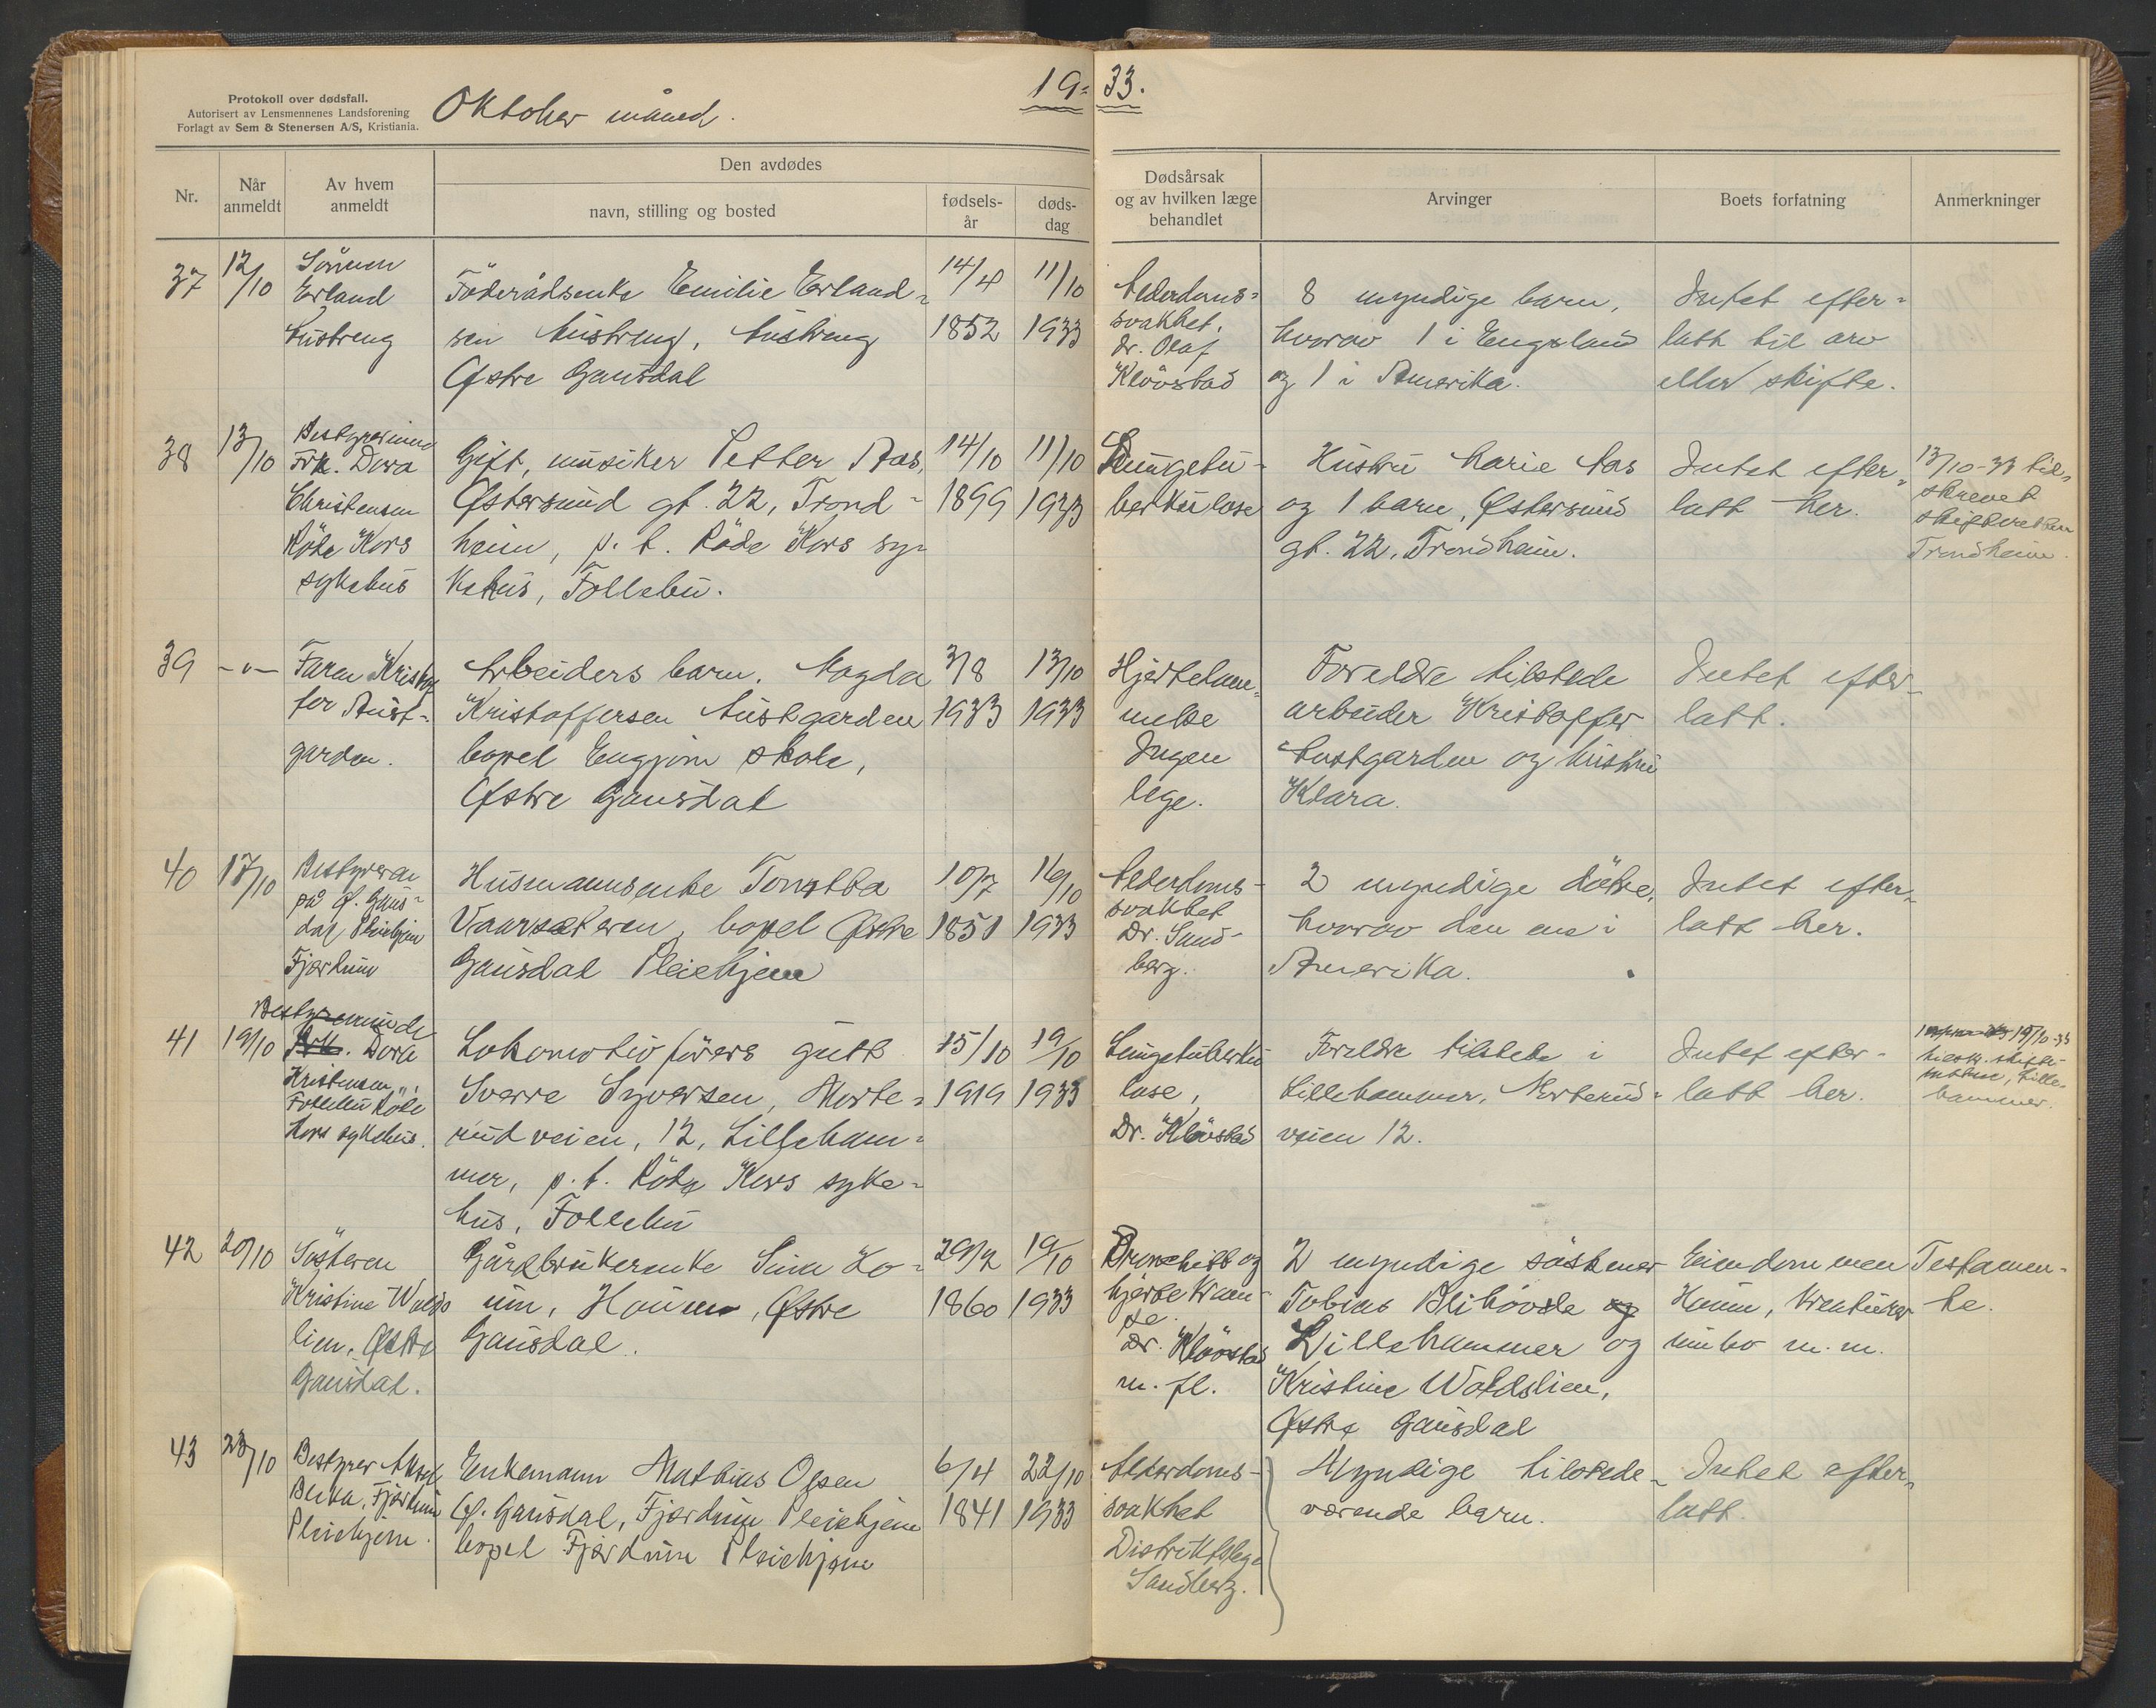 19- 33.
Protokoll over dødsfall.
Autorisert av Lensmennenes Landsforening
Forlagt av Sem & Stenersen A/S, Kristiania.
Oktober måned.
Nr.
Når
anmeldt
Av hvem
anmeldt
Den avdødes
navn, stilling og bosted
fødsels-
år
døds-
dag
Dødsårsak
og av hvilken læge
behandlet
Arvinger
Boets forfatning
Anmerkninger
37
12/10
Sönnen
Erland
Austreng
Föderådsenke Emilie Erland-
sen Austreng, Austreng
Østre Gausdal
14/4
1852
11/10
1933
Alderdoms-
svakhet.
Dr. Olaf
Klövstad
8 myndige barn,
hvorav 1 i England
og 1 i Amerika.
Intet efter-
latt til arv
eller skifte.
38
13/10
Bestyrerinne
Frk. Dora
Christensen
Röde Kors
sykehus
Gift, musiker Petter Aas,
Østersund gt. 22, Trond-
heim, p. t. Röde Kors sy-
kehus, Follebu.
14/10
1899
11/10
1933
Lungetu-
berkulose
Hustru Marie Aas
og 1 barn, Østersund
gt. 22, Trondheim.
Intet efter-
latt her.
13/10-33 til-
skrevet
skifteretten
Trondheim.
39
-"-
Faren Kristof-
fer Aust-
garden.
Arbeiders barn. Magda
Kristoffersen Austgarden
bopel Engjom skole,
Østre Gausdal
3/8
1933
13/10
1933
Hjertelam-
melse
Ingen
lege.
Foreldre tilstede
arbeider Kristoffer
Austgarden og hustru
Klara.
Intet efter-
latt.
40
17/10
Bestyreren
på Ø. Gaus-
dal Pleiehjem
Fjærdum
Husmannsenke Tonetta
Vaarsæteren, bopel Østre
Gausdal Pleiehjem
10/7
1851
16/10
1933
Alderdoms-
svakhet
Dr. Sand-
berg.
2 myndige dötre,
hvorav den ene i
Amerika.
Intet efter-
latt her.
41
19/10
Frk. Dora
Kristensen,
Follebu Röde
Kors sykehus.
Lokomotivförers gutt
Sverre Syversen, Morte-
rudveien, 12, Lilleham-
mer, p. t. Röde Kors syke-
hus, Follebu
15/10
1919
19/10
1933
Lungetuberku
lose,
Dr. Klövstad
Foreldre tilstede i
Lillehammer, Morterud-
veien 12.
Intet efter-
latt her.
19/10-33
tilskr. skifte-
retten, Lille-
hammer.
42
20/10
Søsteren
Kristine Wolds
lien, Østre
Gausdal.
Gårdbrukerenke Sina Ho-
um, Houm, Østre
Gausdal.
29/2
1860
19/10
1933
Bronchitt og
hjertekram-
pe.
Dr. Klövstad
m. fl.
2 myndige söskener
Tobias Blihövde og
Lillehammer og
Kristine Woldslien,
Østre Gausdal
Eiendommen
Houm,
m. m.
Testamen-
te.
43
23/10
Bestyrer
Fjærdum
Pleiehjem.
Enkemann Mathias Olsen
Ø. Gausdal, Fjærdum Pleiehjem
bopel Fjærdum Pleiehjem
6/4
1841
22/10
1933
Alderdoms-
svakhet
Distriktslege
Sandberg.
Myndige tilstede-
værende barn.
Intet efter-
latt.